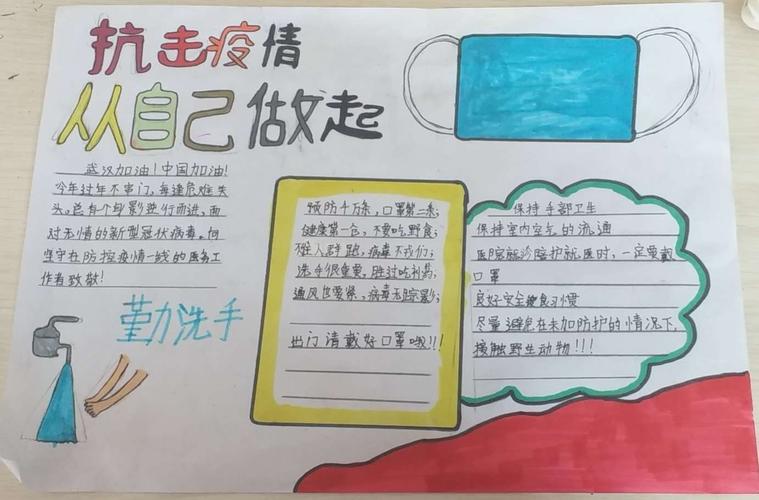 抗击疫情
从自己做起
武汉加油!中国加油!
今年过年不串门,每逢危难关
头。总有个身影逆行而进,面
对无情的新型冠状病毒。向
坚守在防控疫情一线的医务工
作者致敬!
勤洗手
预防千万条,口罩第一条;
健康第一包,不要吃野食;
人群跑,病毒不找们;
洗手很重要,胜过吃利药;
通风也要紧,病毒无踪影;
出门请戴好口罩哦!!!
保持手部卫生
保持室内空气的流通
医院就诊陪护就医时,一定要戴
口罩
良好安全食习惯
尽量避免在未加防护的情况下,
接触野生动物!!!